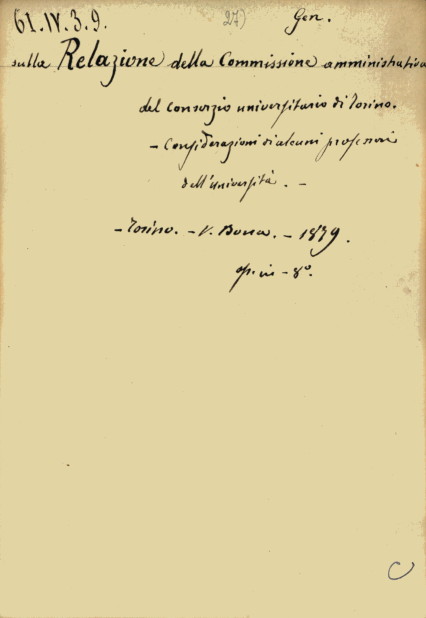 61.IV.3.9. 27) Gen.
sulla Relazione della Commissione amministrativa
del consorzio universitario di Torino.
- Considerazioni di alcuni professori
dell'università. -
- Torino. - V. Bona. - 1879.
op. in - 8º.